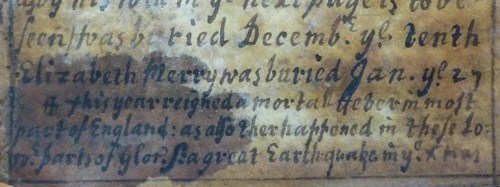 in yᵉ next page is to be
seen) was buried Decembʳ yᵉ tenth
Elizabeth Merry was buried Jan. yᵉ 27
This year reigned a mortal fever in most
part of England: as also ther happened in these Lo-
parts of Gloʳ. Sʳ a great Earthquake in yᵉ Xmas